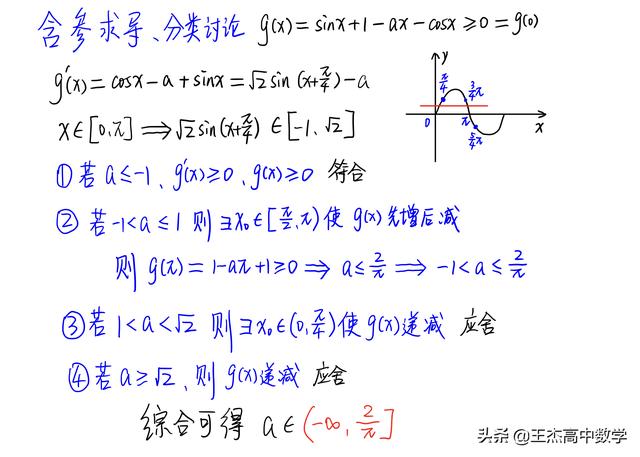 含参求导、分类讨论 g(x)=sinx+1-ax-cosx≥0=g(0)
g'(x)=cosx-a+sinx=√2sin(x+π/4)-a
x∈[0,π]⟹√2sin(x+π/4)∈[-1,√2]
y
π/4
3/4π
0
π
5/4π
x
①若a≤-1、g'(x)≥0、g(x)≥0 符合
②若-1<a≤1 则∃x₀∈[π/2,π)使g(x)先增后减
则g(π)=1-aπ+1≥0⟹a≤2/π⟹-1<a≤2/π
③若1<a<√2 则∃x₀∈(0,π/4)使g(x)递减 应舍
④若a≥√2、则g(x)递减 应舍
综合可得 a∈(-∞,2/π]
头条@王杰高中数学